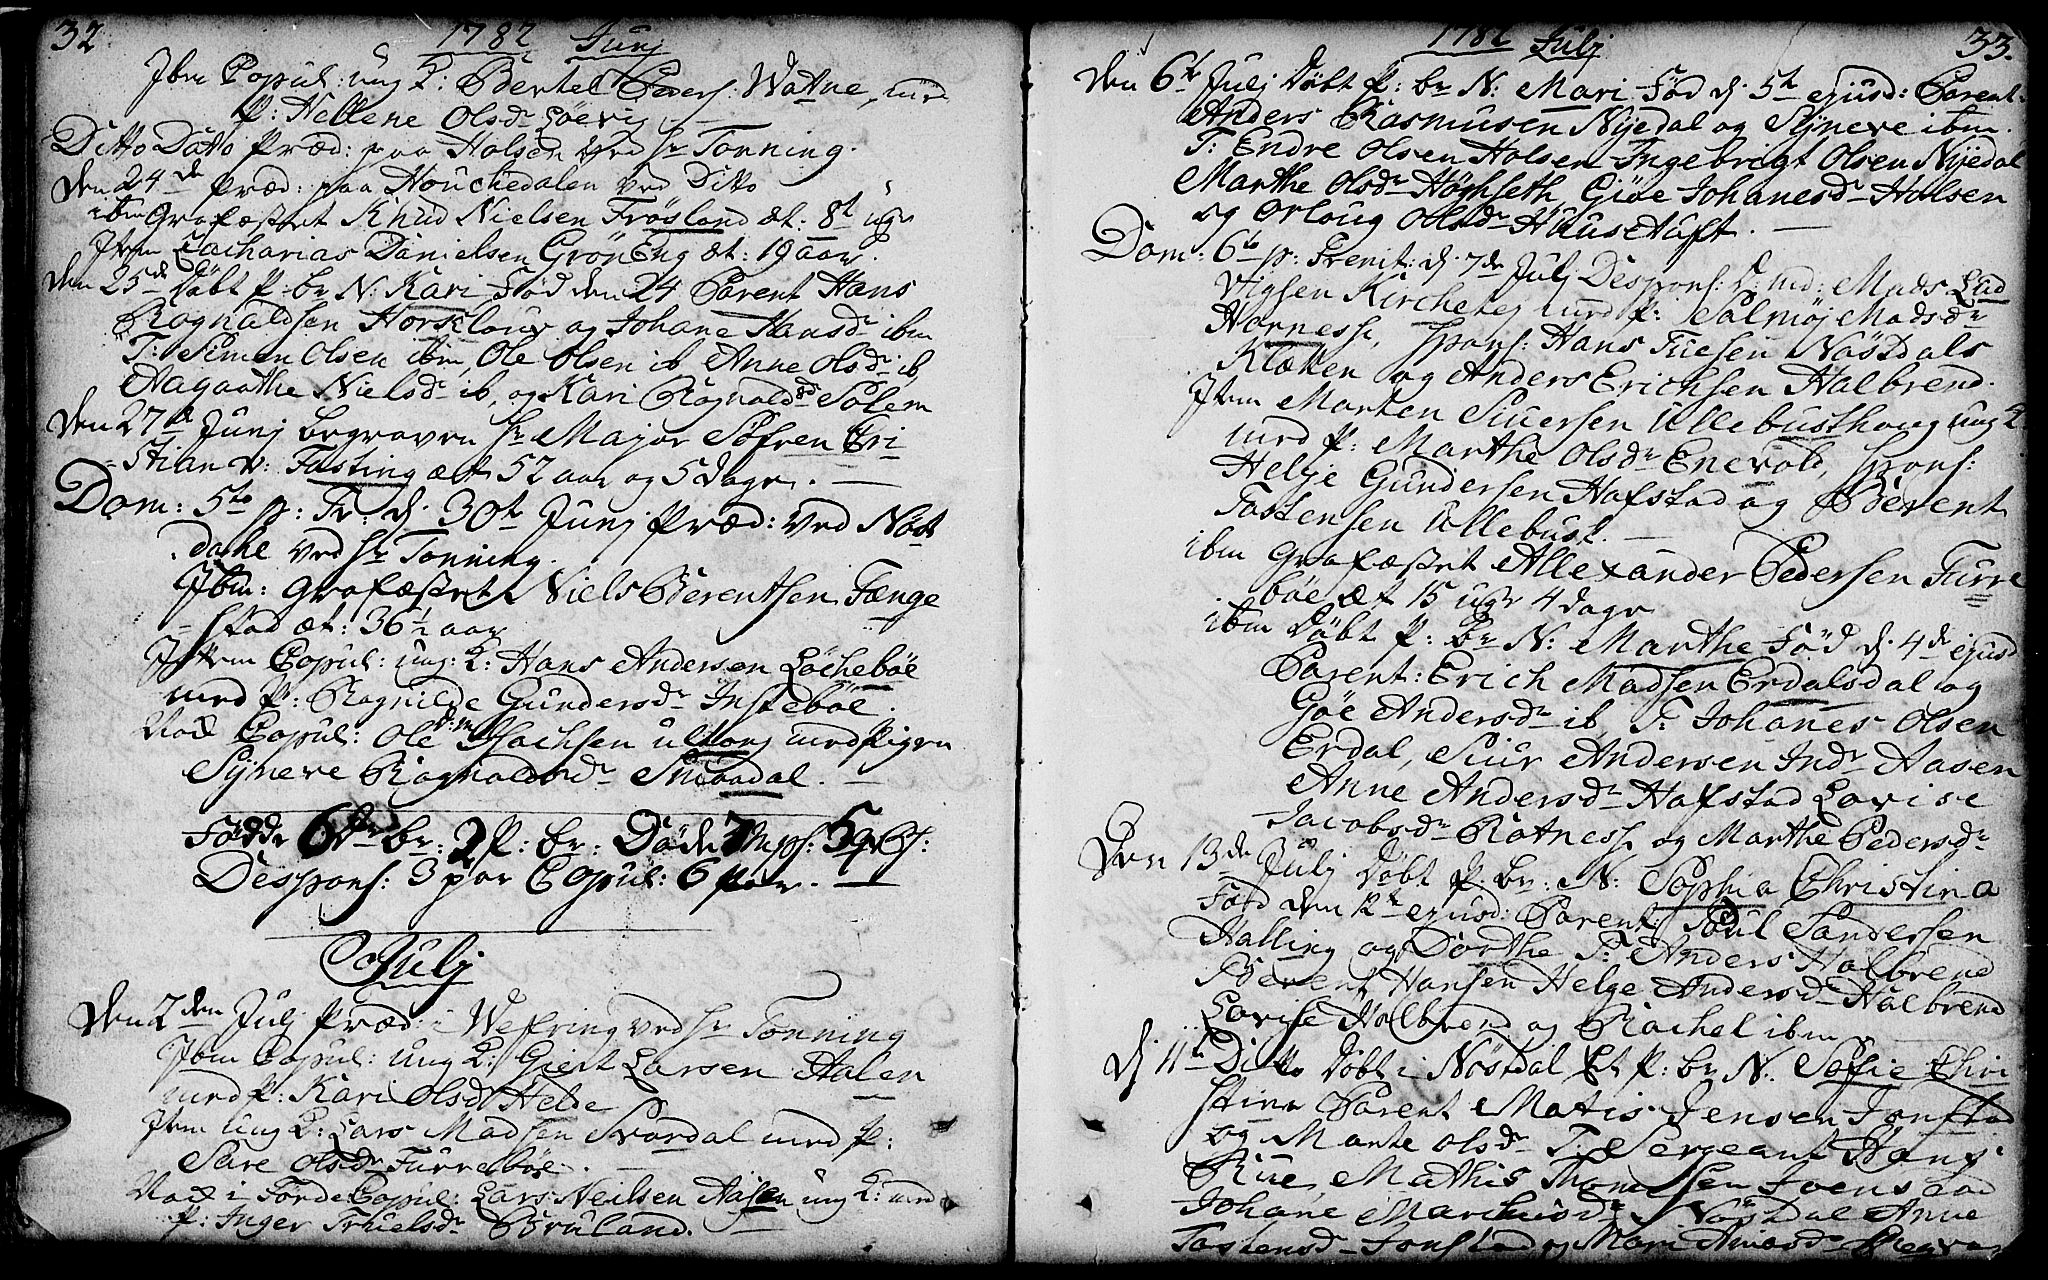 32
1782 Junj
Ibm Copul: ung K: Bertel Peders: Watne, med
P: Hellene Olsdr Löevig
Ditto Datto Præd: paa Holsen ved Hr Tonning.
Den 24de Præd: paa Houchedalen ved Ditto
ibm Grafæstet Knud Nielsen Frösland æt: 8t ugr
Item Zacharias Danielsen Grön Eng æt: 19 aar.
Den 25de Döbt P: br N: Kari Föd den 24 Parent Hans
Rognaldsen Horsklour og Johane Hansdr ibm
T: Simen Olsen ibm, Ole Olsen ib Anne Olsdr ib,
Aagaathe Nielsdr ib, og Kari Rognaldsdr Solem
Den 27de Junj begraven Hr Major Söfren Cri
stian v: Fasting æt 52 aar og 5 Dage.
Dom: 5te p: Tr: d. 30t Junj Præd: ved Nöst
dahl ved Hr Tonning.
Ibm: Grafæstet Niels Berentsen Fænge
stad æt: 36½ aar
Item Copul: ung: K: Hans Andersen Löcheböe
med P: Rognilde Gundersdr Instebøe.
Nok Copul: Ole Isachsen Ulltang med Pigen
Synneve Rognaldsdr Smaadal.
Födde 6 br: 2 P: br: Döde 7
Despons: 3 par Copul: 6 par.
Julj
Den 2den Julj Præd i Wefring ved Hr Tonning
Ibm Copul: ung K: Giert Larsen Aalen
med P: Kari Olsdr Helde
Item ung K: Lars Madsen Svardal med P:
Sare Olsdr Furreböe.
Nok i Förde Copul: Lars Neilsen Aasen ung K: med
P: Inger Truielsdr Bruland.
1782 Julj
33.
Den 6te Julj Döbt P: br N: Mari Föd d. 5te ejusd: Parent.
Anders Rasmusen Nyedal og Synneve ibm.
T: Endre Olsen Holsen Ingebrigt Olsen Nyedal
Marthe Olsdr Höghseth, Giöe Johanesdr Holsen
og Orloug Olsdr Huus Tuft.
Dom: 6te p: Trenit: d. 7de Julj Despons: Mads Lud
vigsen Kircheteig med P: Salmøj Madsdr
Harnesse, Spons: Hans Tuesen Nösdals
Klakken og Anders Erichsen Halbrend.
Item Morten Siuersen Ullebusthoug ung K
med P: Marthe Olsdr Enevold, Spons:
Helje Gundersen Hafstad og Berent
Tostensen Ullebust.
ibm Grafæstet Allexander Pedersen Furre
böe æt 15 ugr 4 Dage
ibm Döbt P: br N: Marthe Föd d. 4de ejusd
Parent: Erich Madsen Erdalsdal og
Göe Andersdr ib T: Johanes Olsen
Erdal, Siur Andersen Indr Aasen
Anne Andersdr Hafstad Lovise
Jacobsdr Ratness og Marthe Pedersdr
Den 13de Julj Döbt P: br: N: Sophia Christina
Föed den 12te ejusd: Parent: Poul Sandersen
Halling og Dorthe T: Anders Halbrend
Berent Hansen Helge Andersdr Halbrend
Lovise Halbrend og Rachel ibm
D. 11te Ditto Döbt i Nöstdal Et P: br N. Sofie Chri
stina Parent Matis Jensen Jonstad
og Marte Olsdr T: Sergeant Hans
Riue, Mathis Thomessen Joenstad
Johane Marchusdr Nöstdal Anne
Tostensdr Jonstad og Mari Amosdr